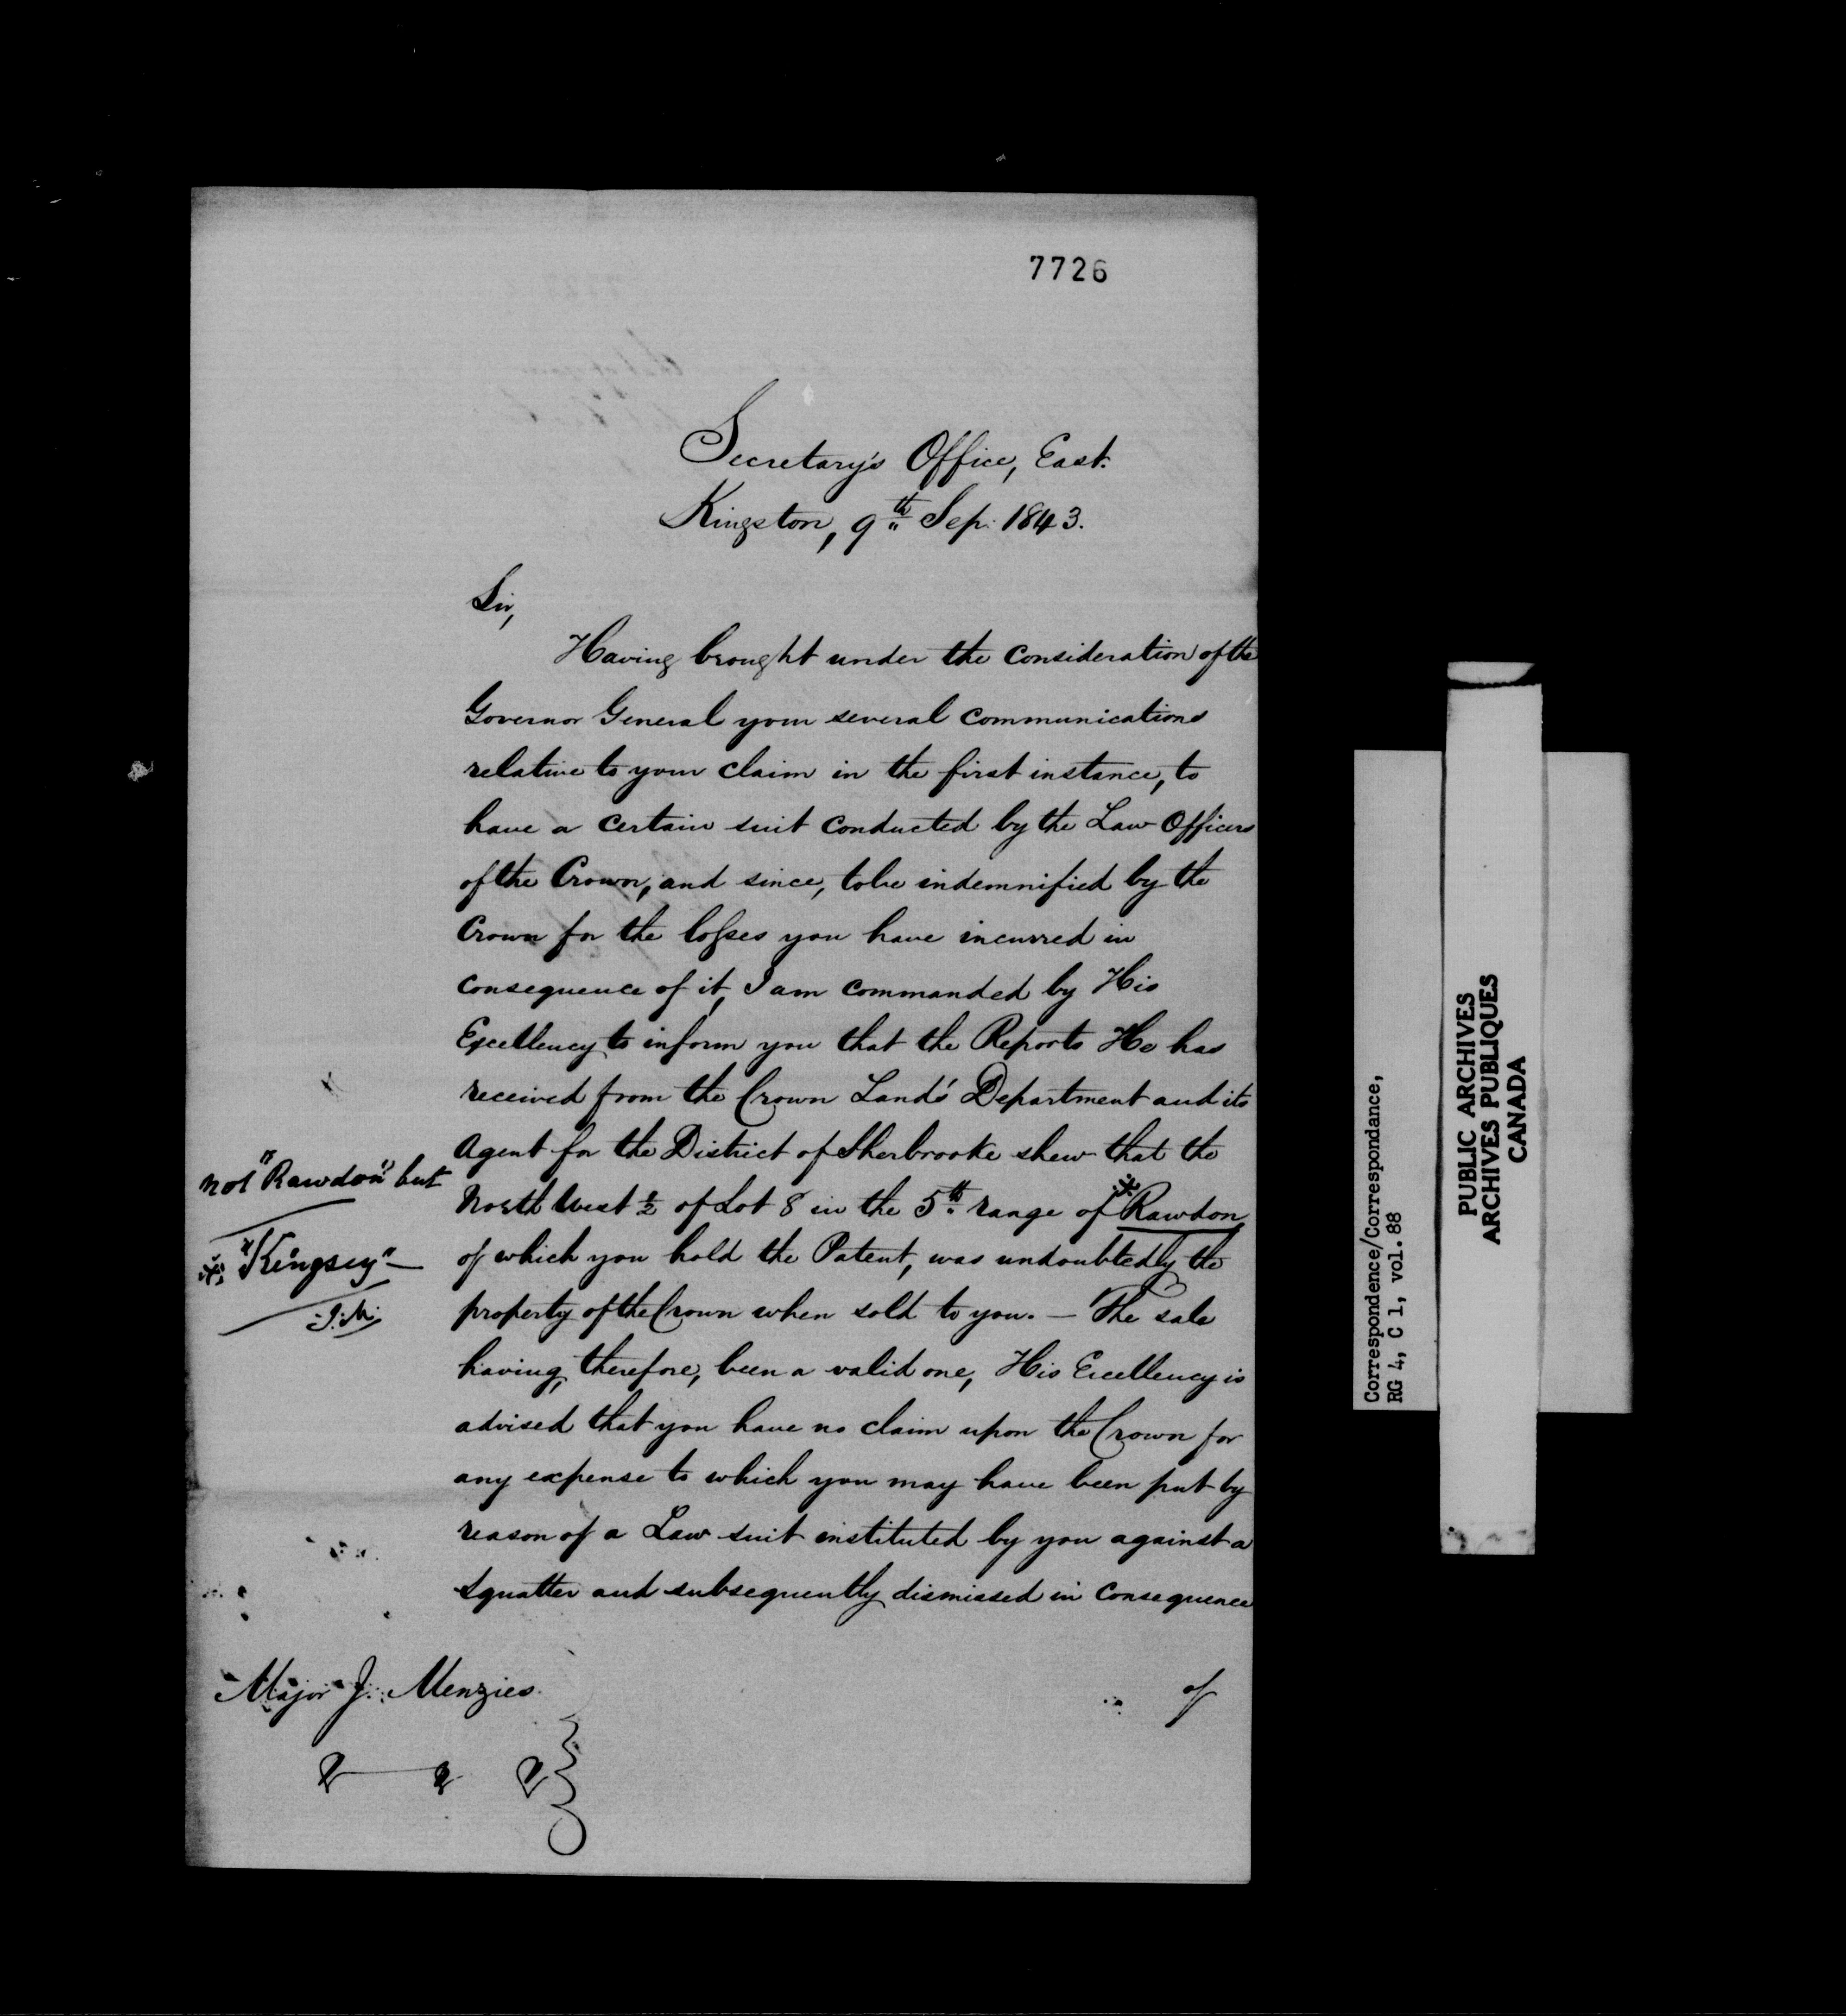 7726
Secretary's Office, East.
Kingston, 9th Sep: 1843.
Sir,
Having brought under the consideration of the
Governor General your several communications
relative to your claim in the first instance, to
have a certain suit conducted by the Law Officers
of the Crown, and since, to be indemnified by the
Crown for the losses you have incurred in
consequence of it, I am commanded by His
Excellency to inform you that the Reports He has
received from the Crown Land's Department and its
Agent for the District of Sherbrooke shew that the
North West ½ of Lot 8 in the 5th range of *Rawdon,
of which you hold the Patent, was undoubtedly the
property of the Crown when sold to you. — The sale
having, therefore, been a valid one, His Excellency is
advised that you have no claim upon the Crown for
any expense to which you may have been put by
reason of a Law suit instituted by you against a
Squatter and subsequently dismissed in consequence
of
not "Rawdon" but
* "Kingsey" —
J.M.
Major J. Menzies
Correspondence/Correspondance,
RG 4, C 1, vol. 88
PUBLIC ARCHIVES
ARCHIVES PUBLIQUES
CANADA